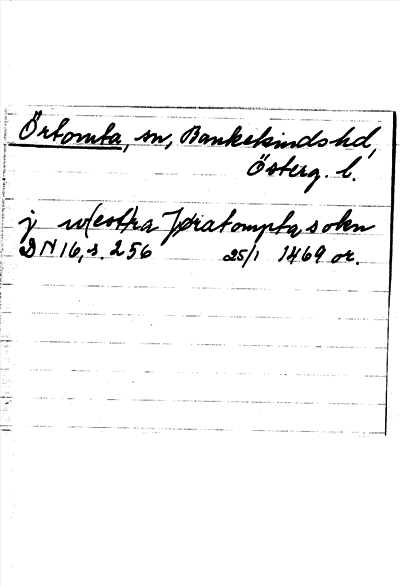 Örtomta, sn, Bankekinds hd,
Österg. l.
j w(est)ra Jøratompta sokn
DN 16, s. 256 25/1 1469 or.